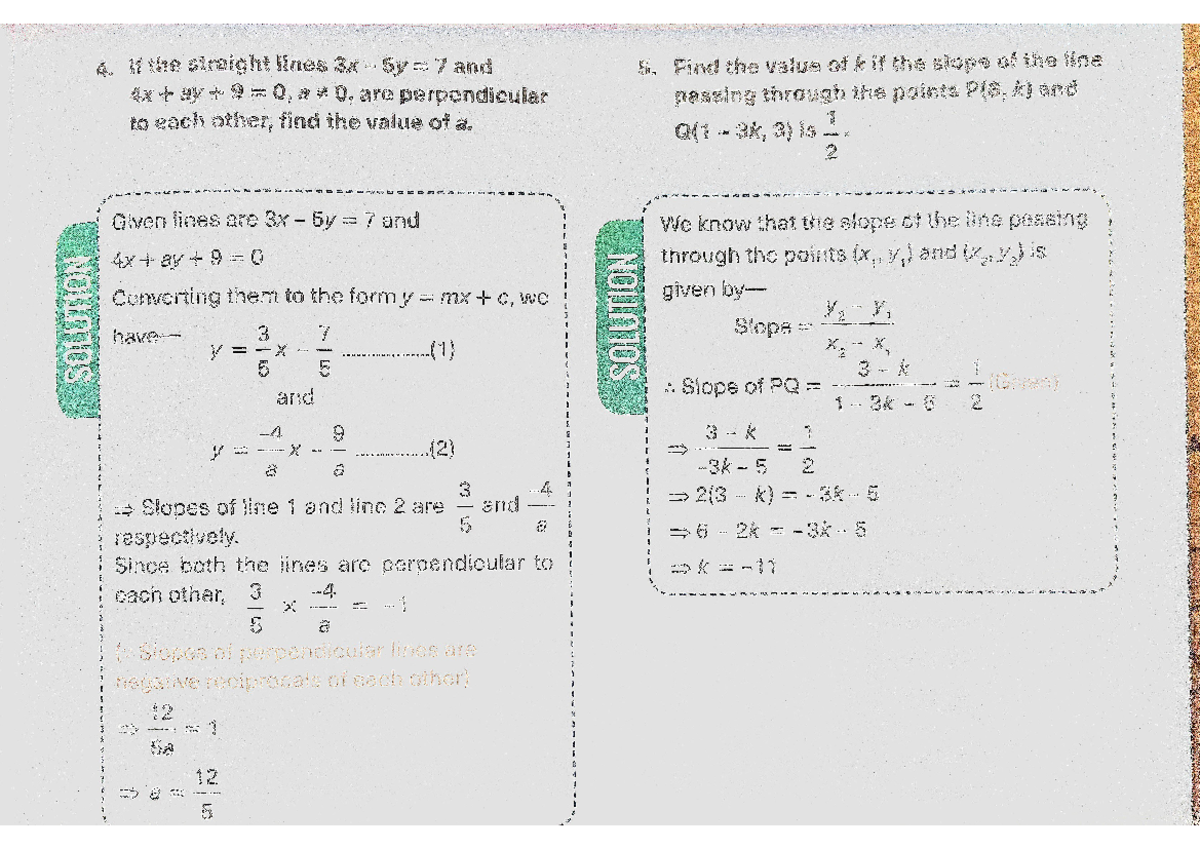 4. If the straight lines 3x – 5y = 7 and
4x + ay + 9 = 0, a ≠ 0, are perpendicular
to each other, find the value of a.
SOLUTION
Given lines are 3x – 5y = 7 and
4x + ay + 9 = 0
Converting them to the form y = mx + c, we
have— y = 3/5 x – 7/5 ................(1)
and
y = –4/a x – 9/a ................(2)
⇒ Slopes of line 1 and line 2 are 3/5 and –4/a
respectively.
Since both the lines are perpendicular to
each other, 3/5 × –4/a = –1
(∵ Slopes of perpendicular lines are
negative reciprocals of each other)
⇒ 12/5a = 1
⇒ a = 12/5
5. Find the value of k if the slope of the line
passing through the points P(6, k) and
Q(1 – 3k, 3) is 1/2.
SOLUTION
We know that the slope of the line passing
through the points (x₁, y₁) and (x₂, y₂) is
given by—
Slope = y₂ – y₁ / x₂ – x₁
∴ Slope of PQ = 3 – k / 1 – 3k – 6 = 1/2 (Given)
⇒ 3 – k / –3k – 5 = 1/2
⇒ 2(3 – k) = –3k – 5
⇒ 6 – 2k = –3k – 5
⇒ k = –11